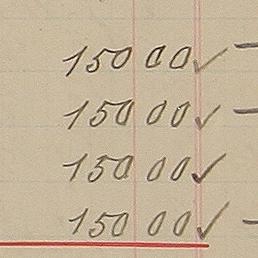 150 00 ✓
150 00 ✓
150 00 ✓
150 00 ✓